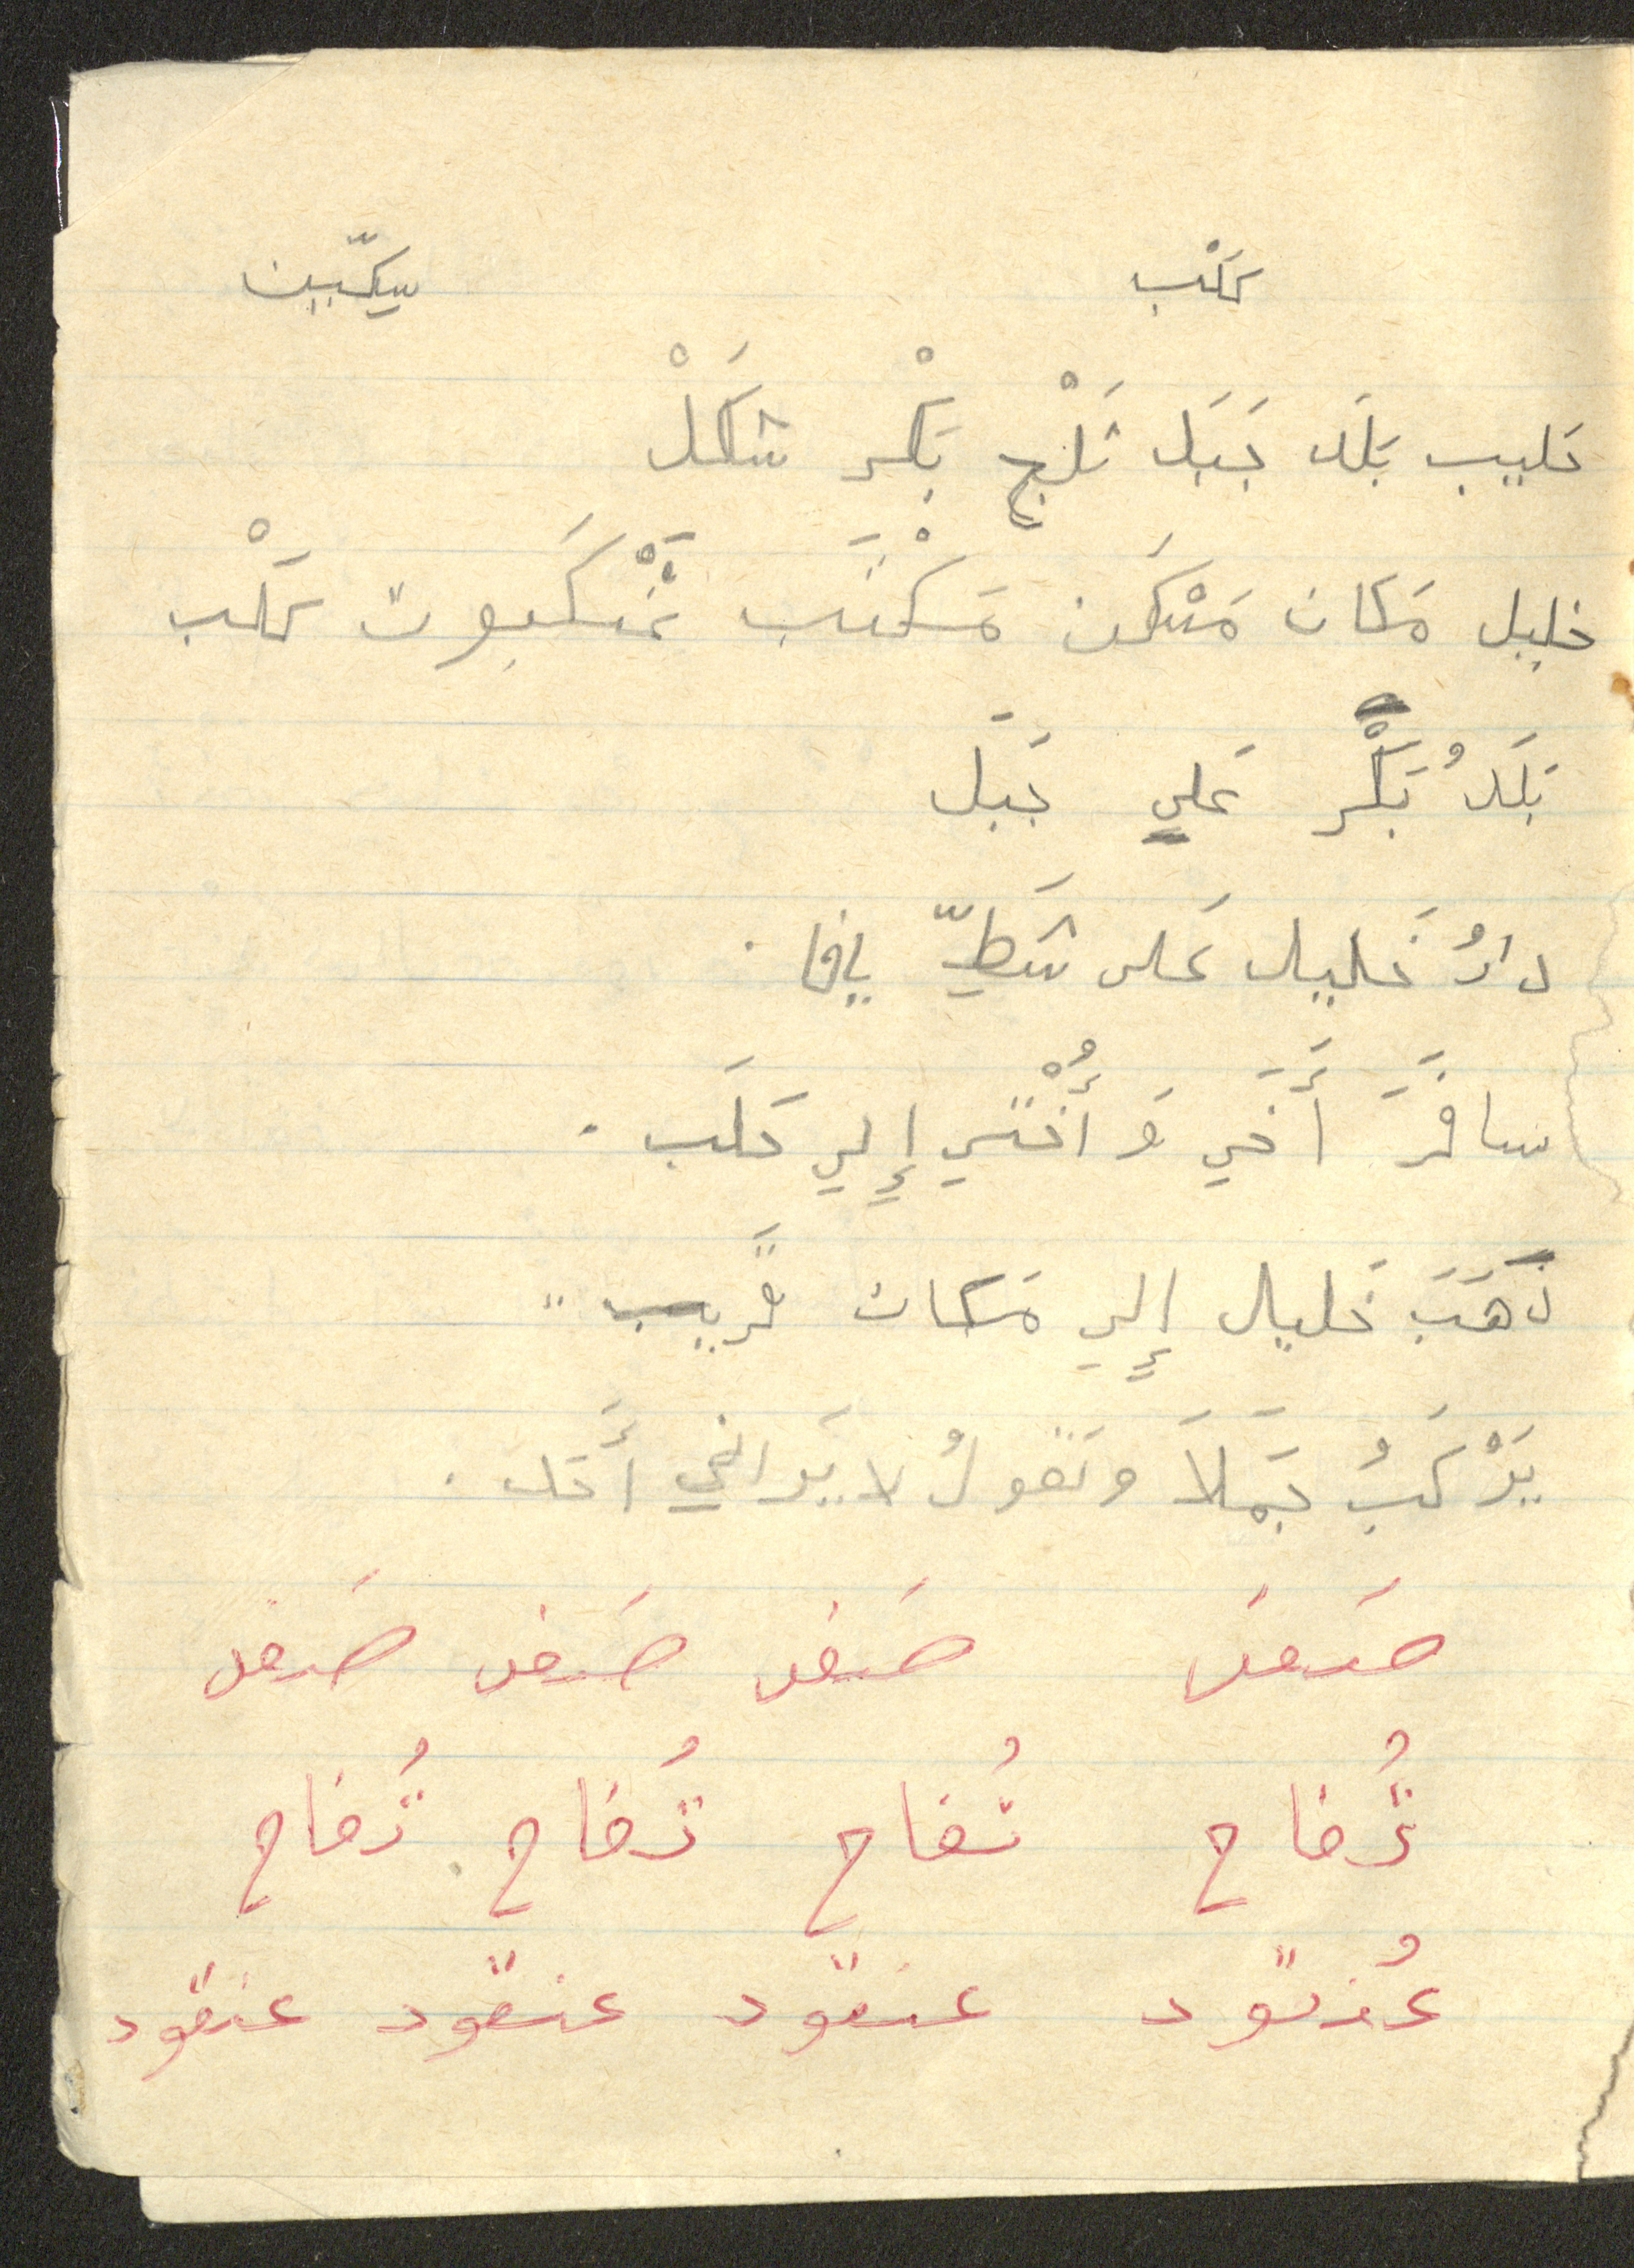 كَلْب سِكّين
حَليب بَلَد جَبَل ثَلْج بَكْر شَكَلْ
خليل مَكان مَسْكَن مَكْتَب عَنْكَبوت كَلْب
بَلَدُ بَكْر عَلي جَبَل
دارُ خَليل عَلى شَطِّ يافا .
سافَرَ أَخي وَ أُخْتي إِلي حَلَب .
ذَهَبَ خَليل إِلي مَكان قَريب
يَرْكَبُ جَمَلاً وَ تَقولُ لا يَراني أَحَد .
صَحن صَحن صَحن
تُفاح تُفاح تُفاح تُفاح
عُنقود عنقود عنقود عنقود